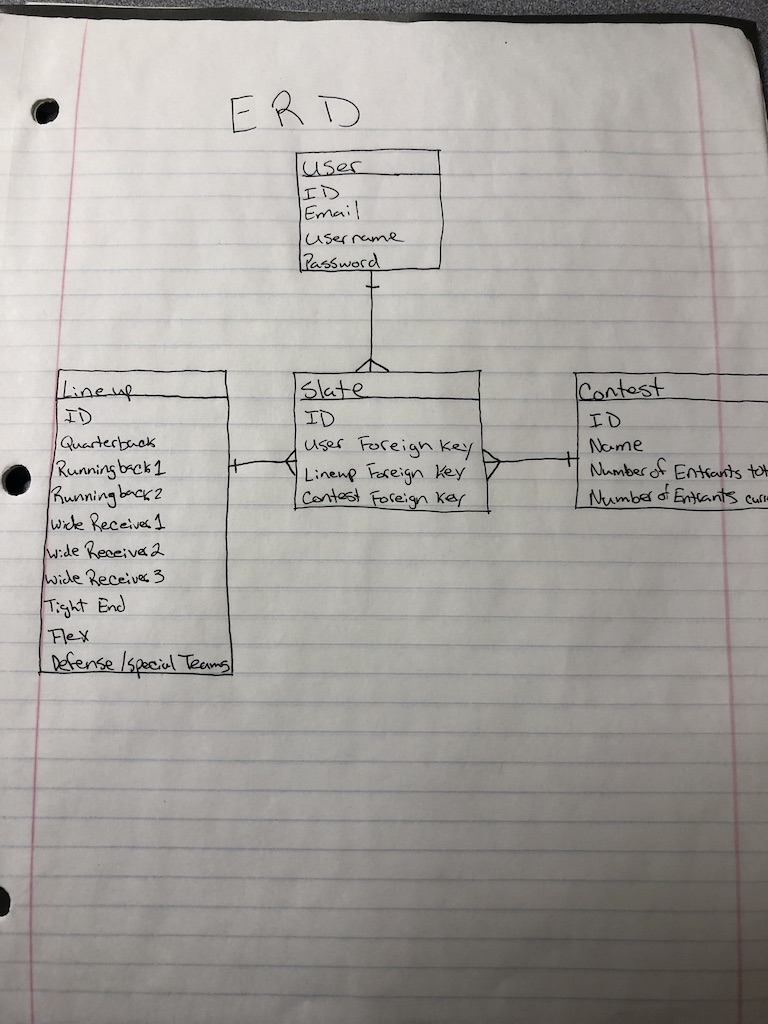 ERD
User
ID
Email
Username
Password
Lineup
ID
Quarterback
Runningback1
Runningback2
Wide Receiver1
Wide Receiver2
Wide Receiver3
Tight End
Flex
Defense/Special Teams
Slate
ID
User Foreign Key
Lineup Foreign Key
Contest Foreign Key
Contest
ID
Name
Number of Entrants
Number of Entrants